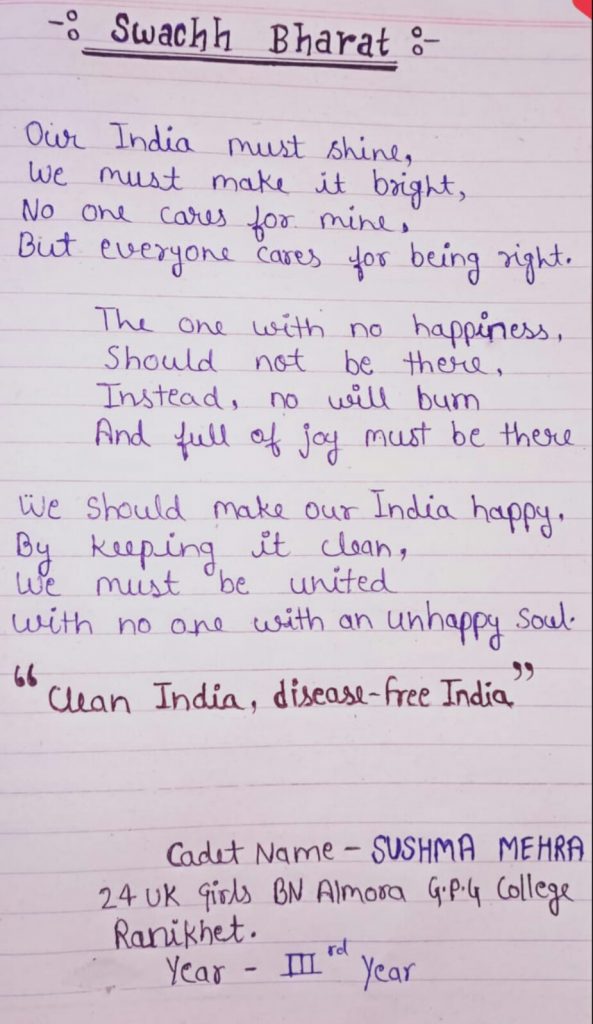 -: Swachh Bharat :-
Our India must shine,
We must make it bright,
No one cares for mine,
But everyone cares for being right.
The one with no happiness,
Should not be there,
Instead, no will burn
And full of joy must be there
We should make our India happy,
By keeping it clean,
We must be united
with no one with an unhappy soul.
"Clean India, disease-free India"
Cadet Name - SUSHMA MEHRA
24 UK Girls BN Almora G.P.G College
Ranikhet.
Year - IIIrd Year